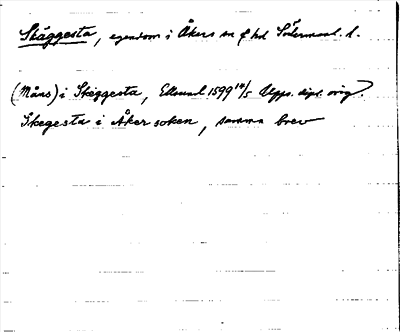 Skäggesta, egendom i Åkers sn o hd Södermanl. l.
(Måns) i Skeggesta, 1599 14/5 Upps. dipl. orig.
Skegesta i Åker soken, samma brev